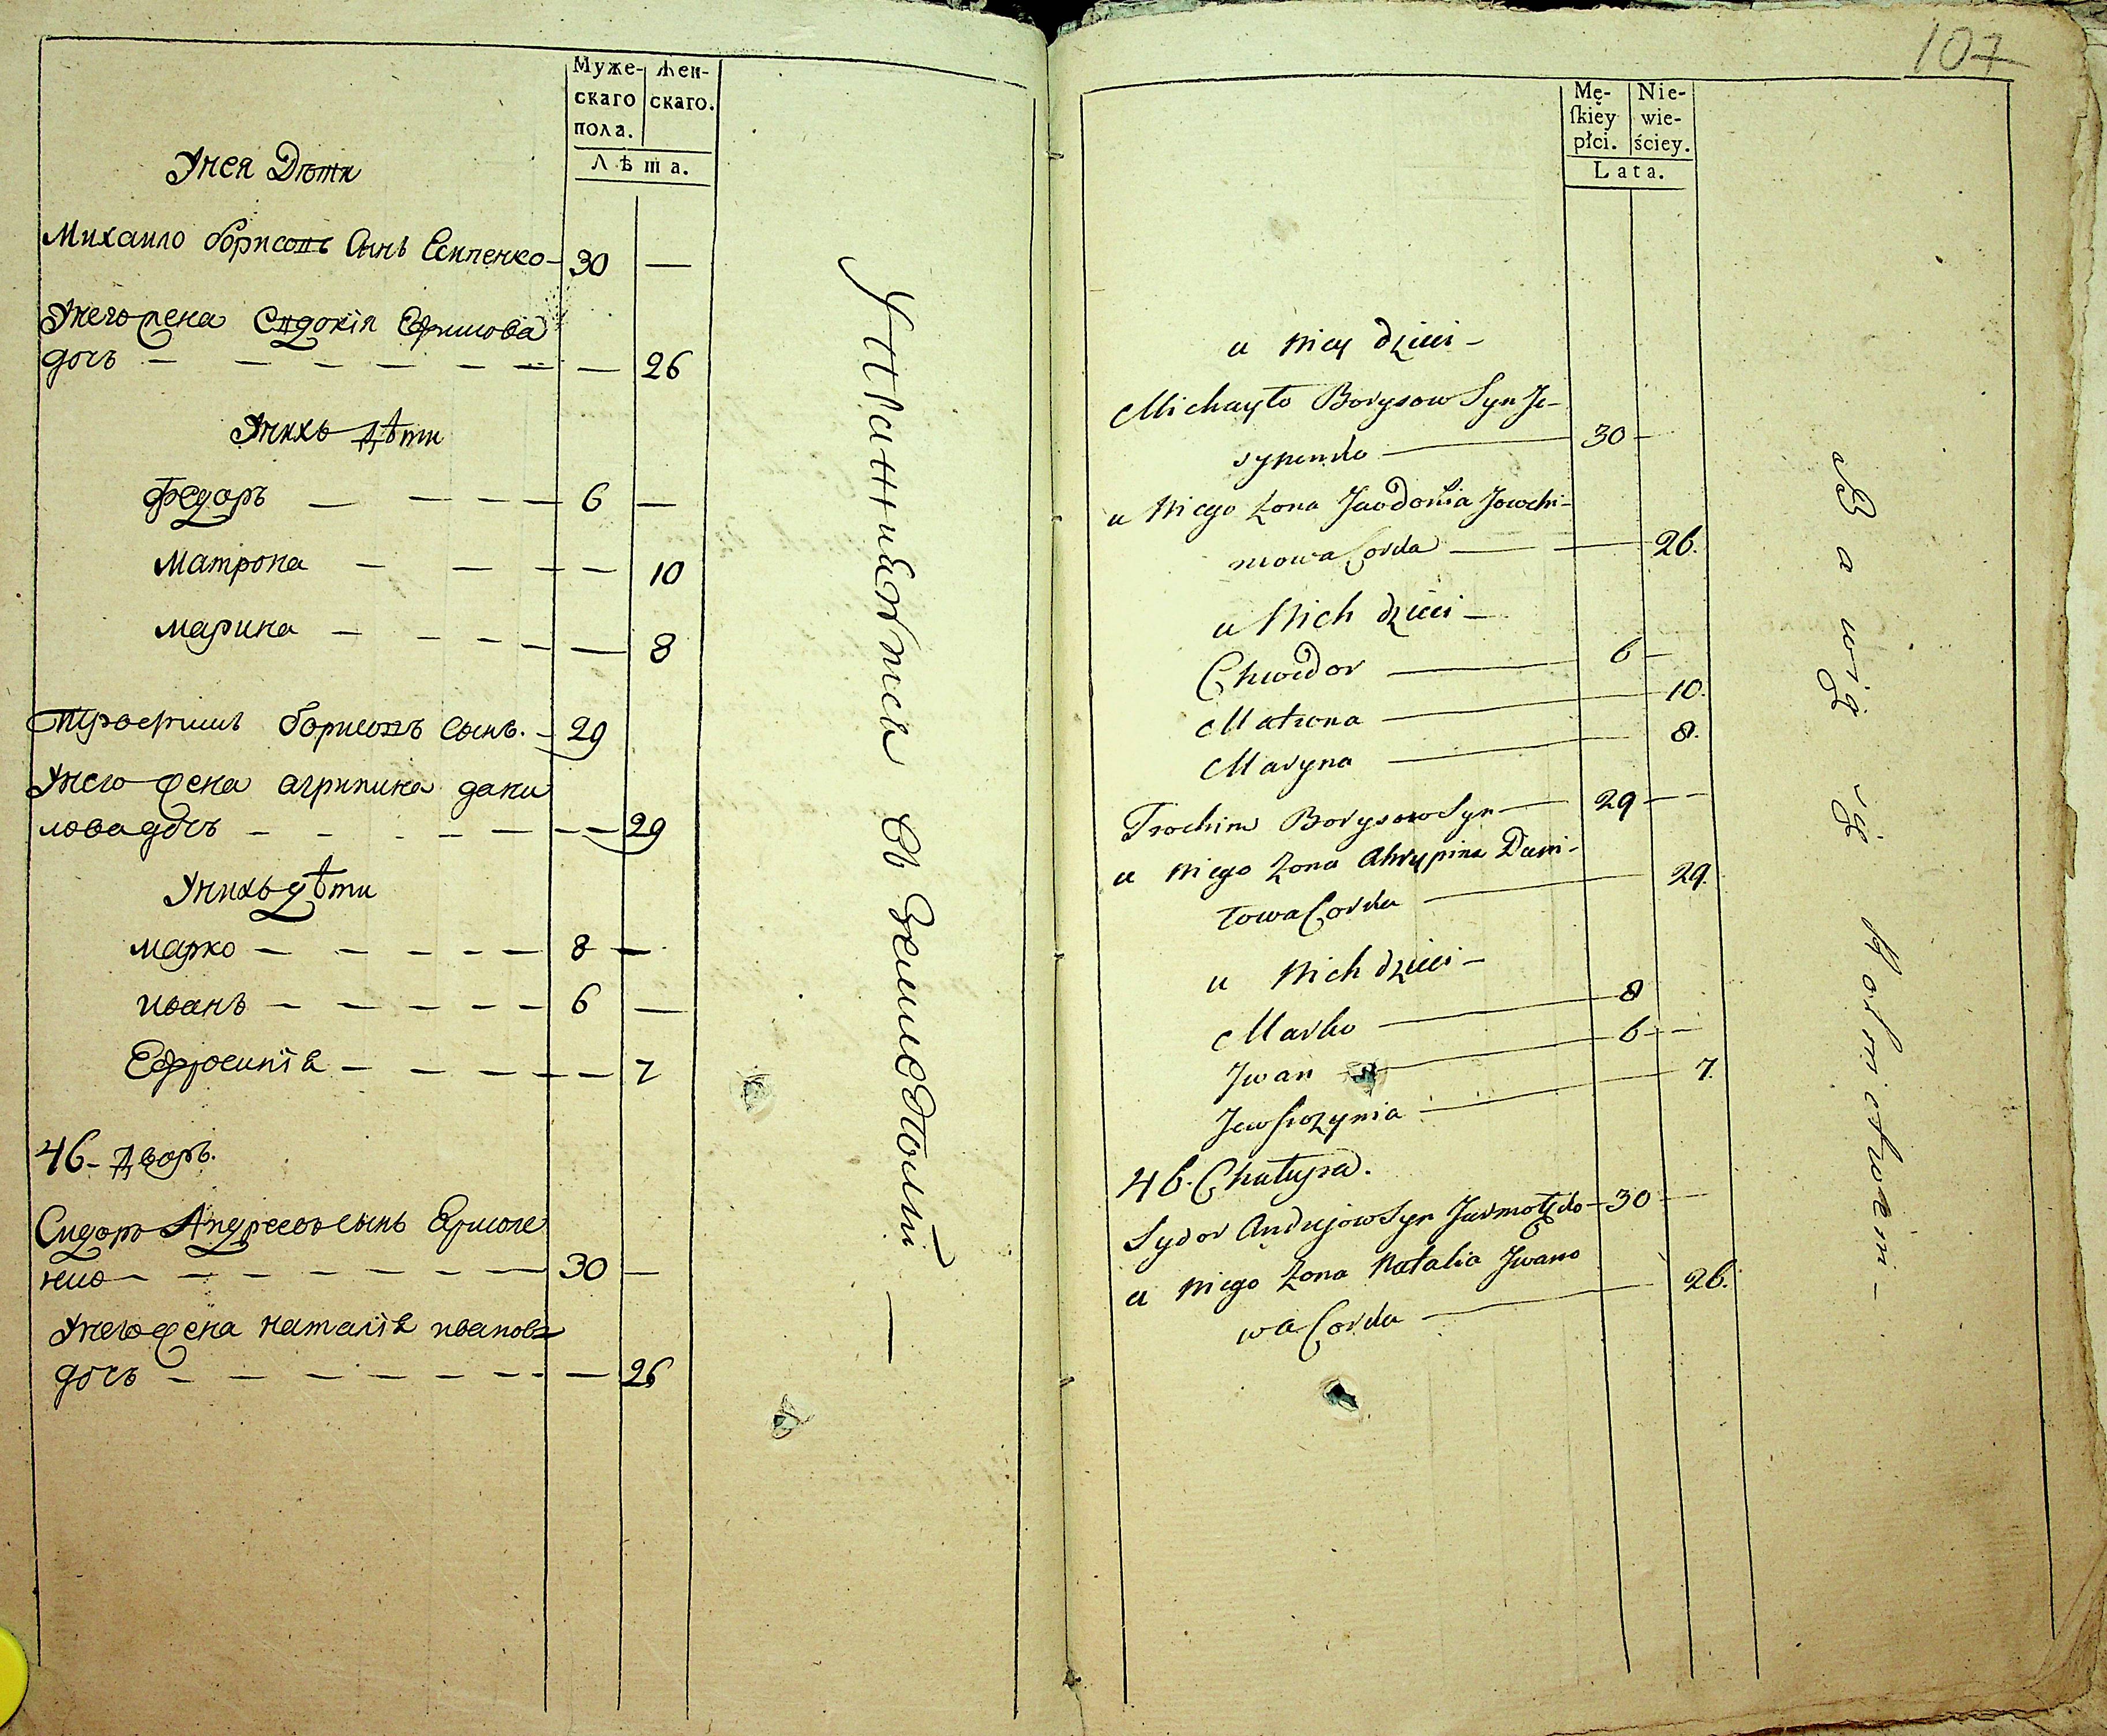 Муже-
скаго
пола.
Жен-
скаго.
Лѣта.
Унея Дѣти
Михаило борисовъ Сынъ Есипенко — 30 —
Унего жена Евдокія Ефимова
дочъ — 26
Унихъ дѣти
Федоръ — 6 —
Матрона — 10
марина — 8
Трофимъ борисовъ сынъ. — 29
Унего жена агрипина дани
лова дочъ — 29
Унихъ дѣти
марко — 8 —
иванъ — 6 —
Ефросинія — 7
46 – дворъ.
Сидоръ Андреевъ сынъ Ермоле
нко — 30 —
Унего жена наталія иванова
дочъ — 26
Упражняется въ Земледелии —
107
Mę-
ſkiey
płci.
Nie-
wie-
ściey.
Lata.
u Niey dzieci –
Michayło Borysow Syn Je-
sypenko — 30 –
u Niego Żona Jawdokia Jowchi-
mowa Corka — 26.
u Nich dzieci –
Chwedor — 6 –
Matrona — 10.
Maryna — 8.
Trochim Borysow Syn — 29 –
u Niego Żona Ahrypina Dani-
łowa Corka — 29.
u Nich dzieci –
Marko — 8
Jwan — 6 –
Jewfrozynia — 7.
46. Chałupa.
Sydor Andrejow Syn Jarmołenko – 30 –
u Niego Żona Natalia Jwano
wa Corka — 26.
Bawią się Rolnictwem –